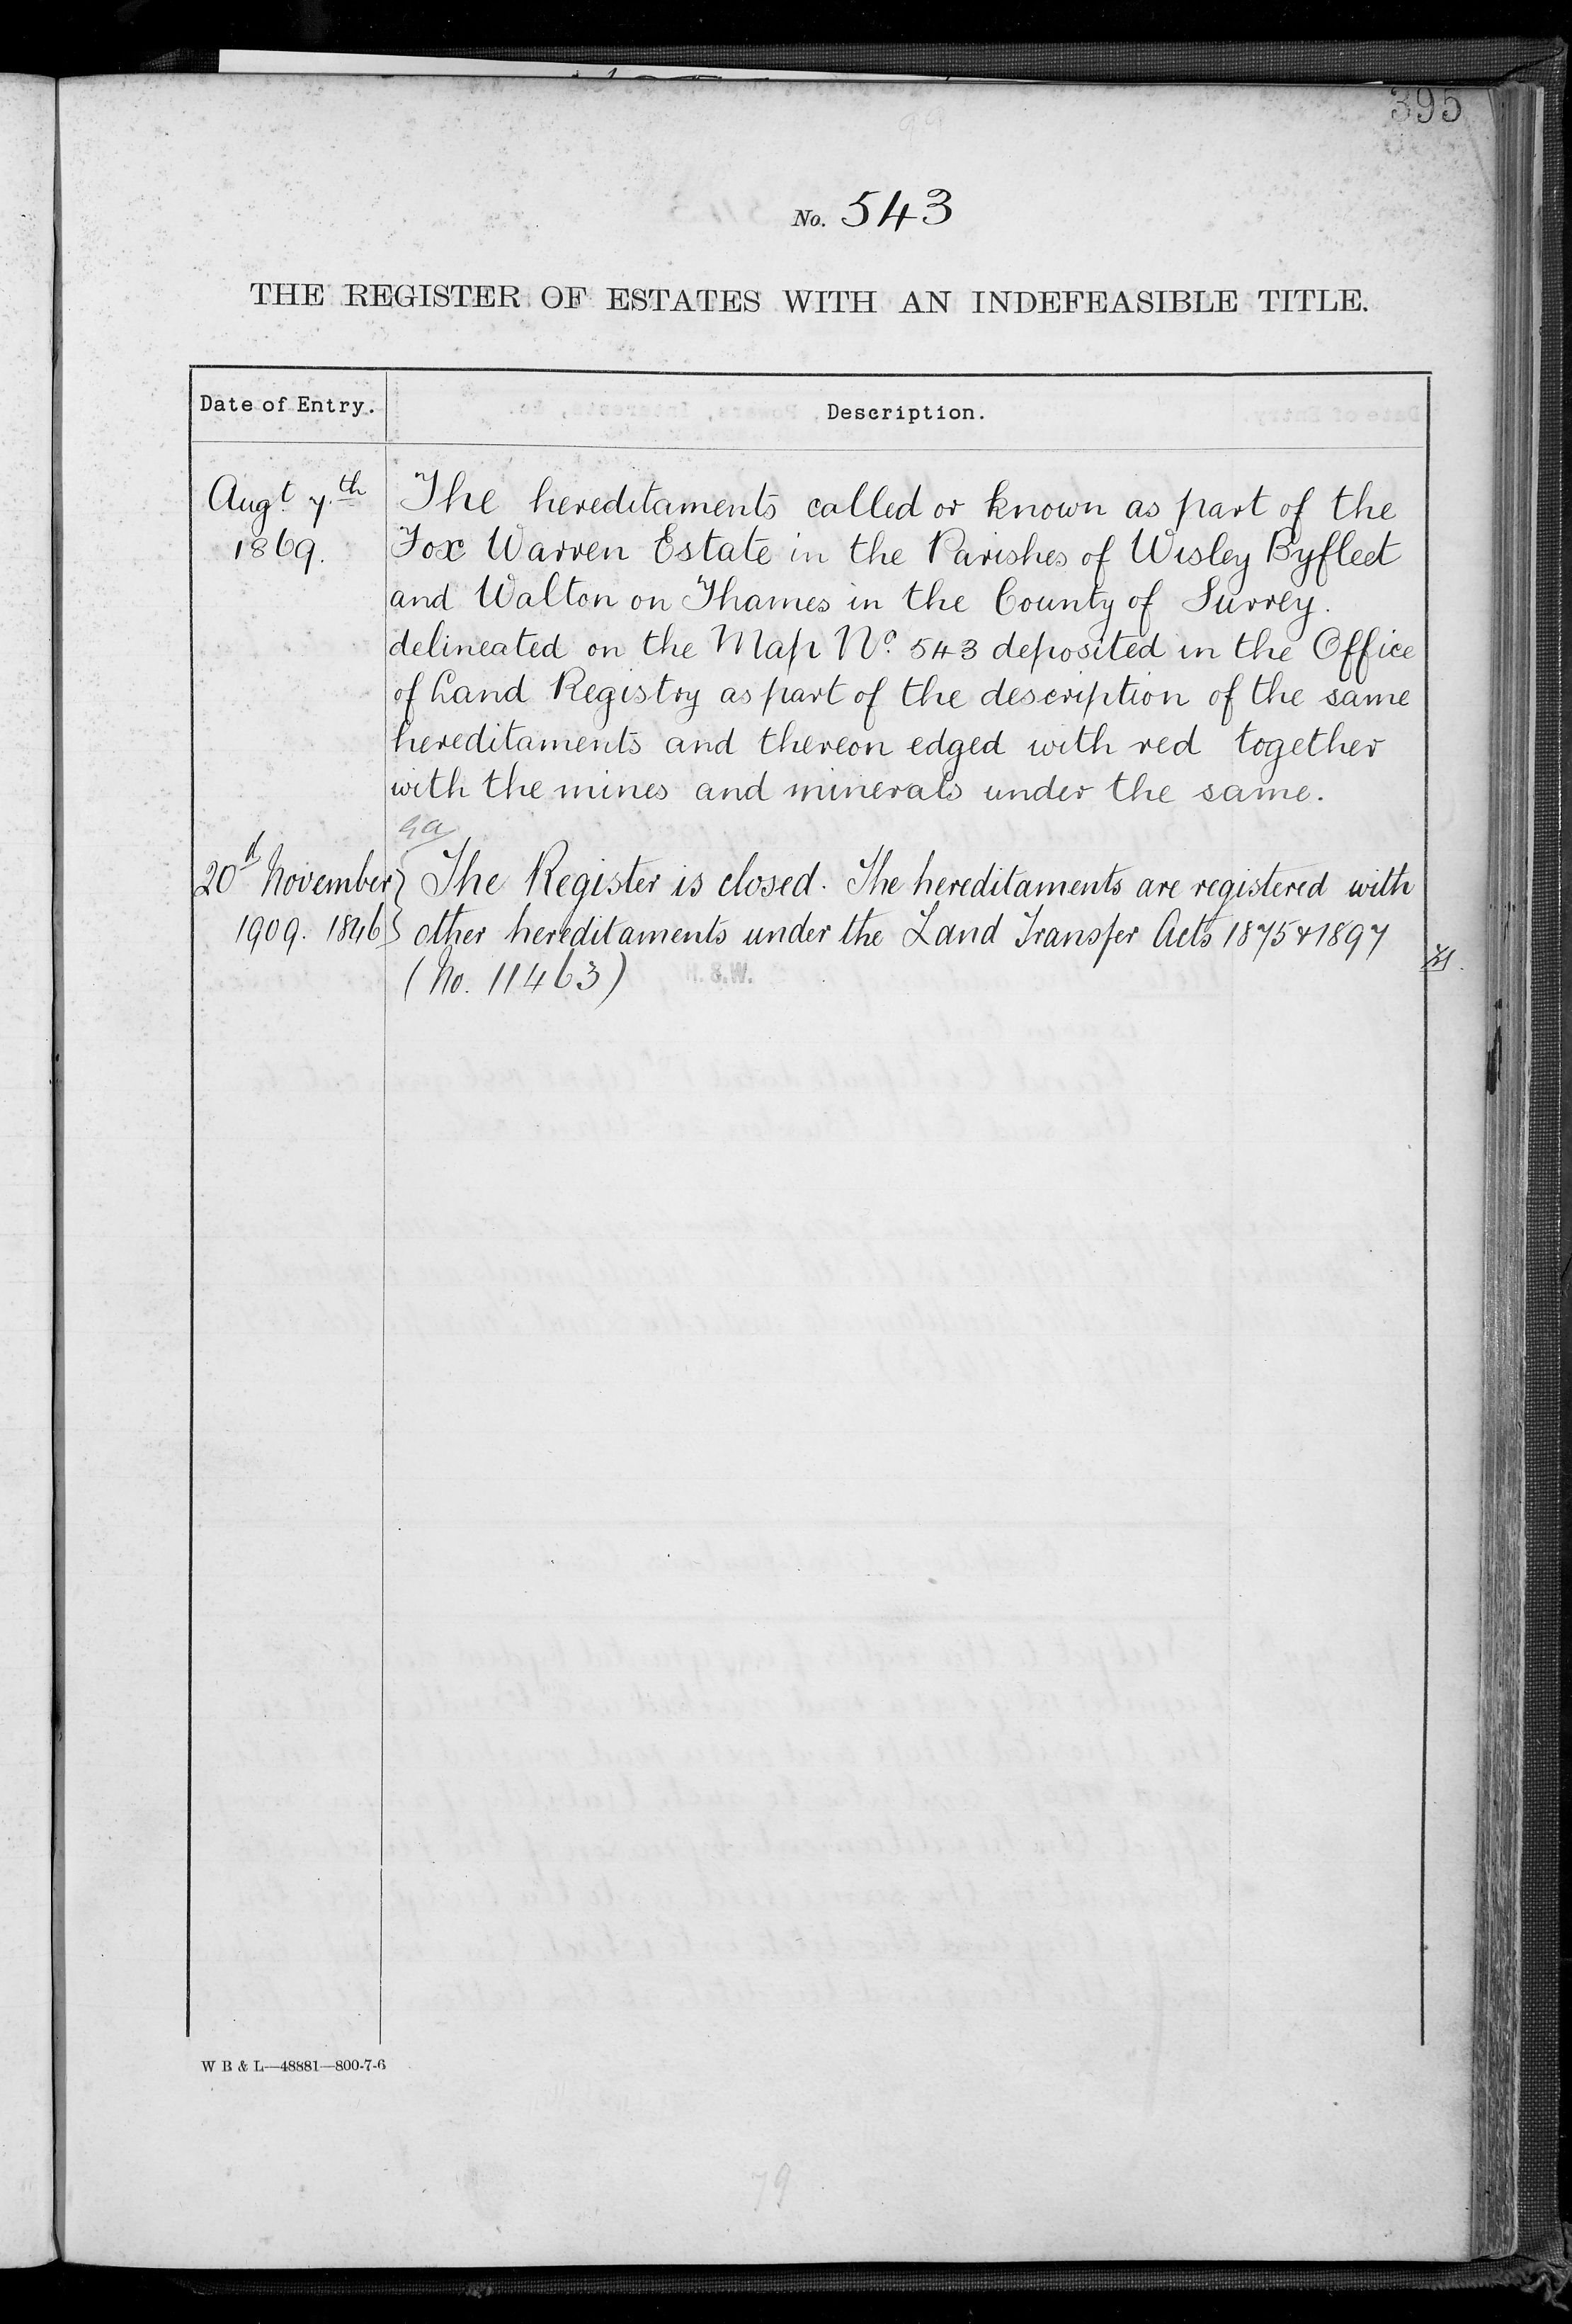 395
No. 543
THE REGISTER OF ESTATES WITH AN INDEFEASIBLE TITLE.
Date of Entry. Description.
Augt. 7.th The hereditaments called or known as part of the
1869. Fox Warren Estate in the Parishes of Wisley Byfleet
and Walton on Thames in the County of Surrey.
delineated on the Map No. 543 deposited in the Office
of Land Registry as part of the description of the same
hereditaments and thereon edged with red together
with the mines and minerals under the same.
20th November } The Register is closed. The hereditaments are registered with
1909. 1846 } other hereditaments under the Land Transfer Acts 1875 & 1897
(No. 11463) H.S.W.
W B & L—48881—800-7-6
79